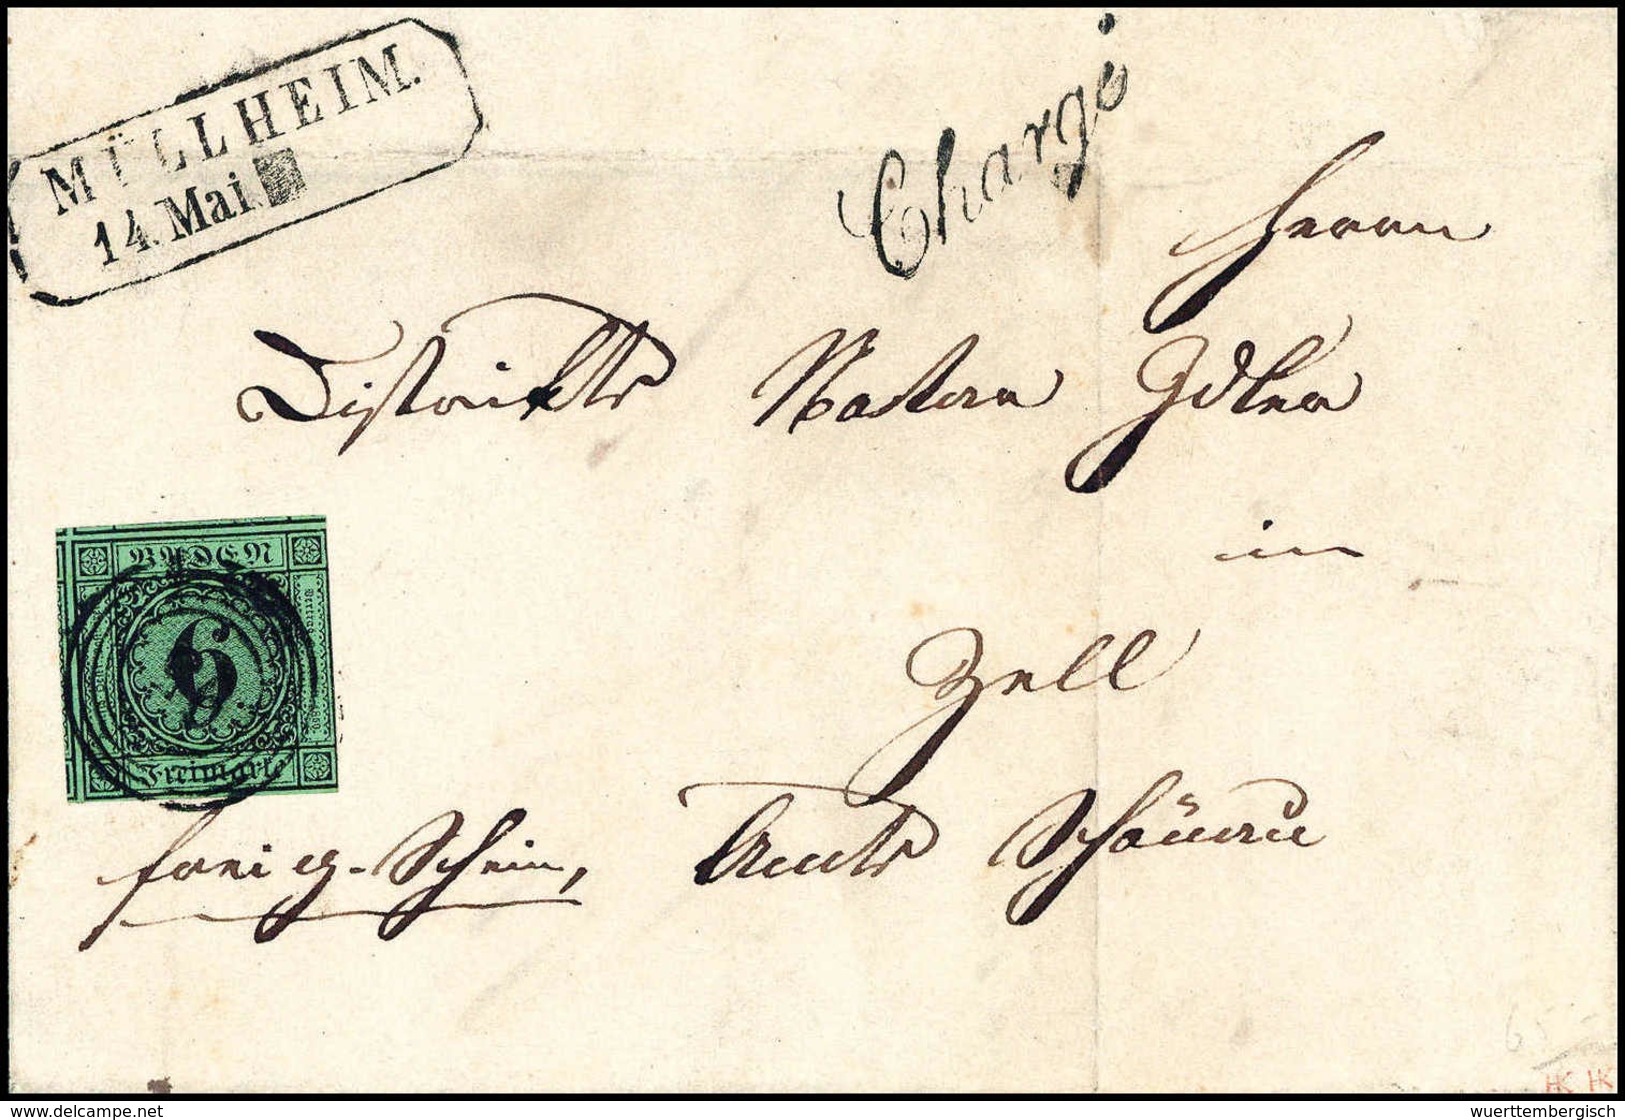 MÜLLHEIM.
14. Mai.
Chargé
Herrn
Distrikts Notar Idler
in
Zell
Amts Schönau
frei g. Schein,
BADEN
6
Freimarke
65
HK HK
delcampe.net
wuerttembergisch